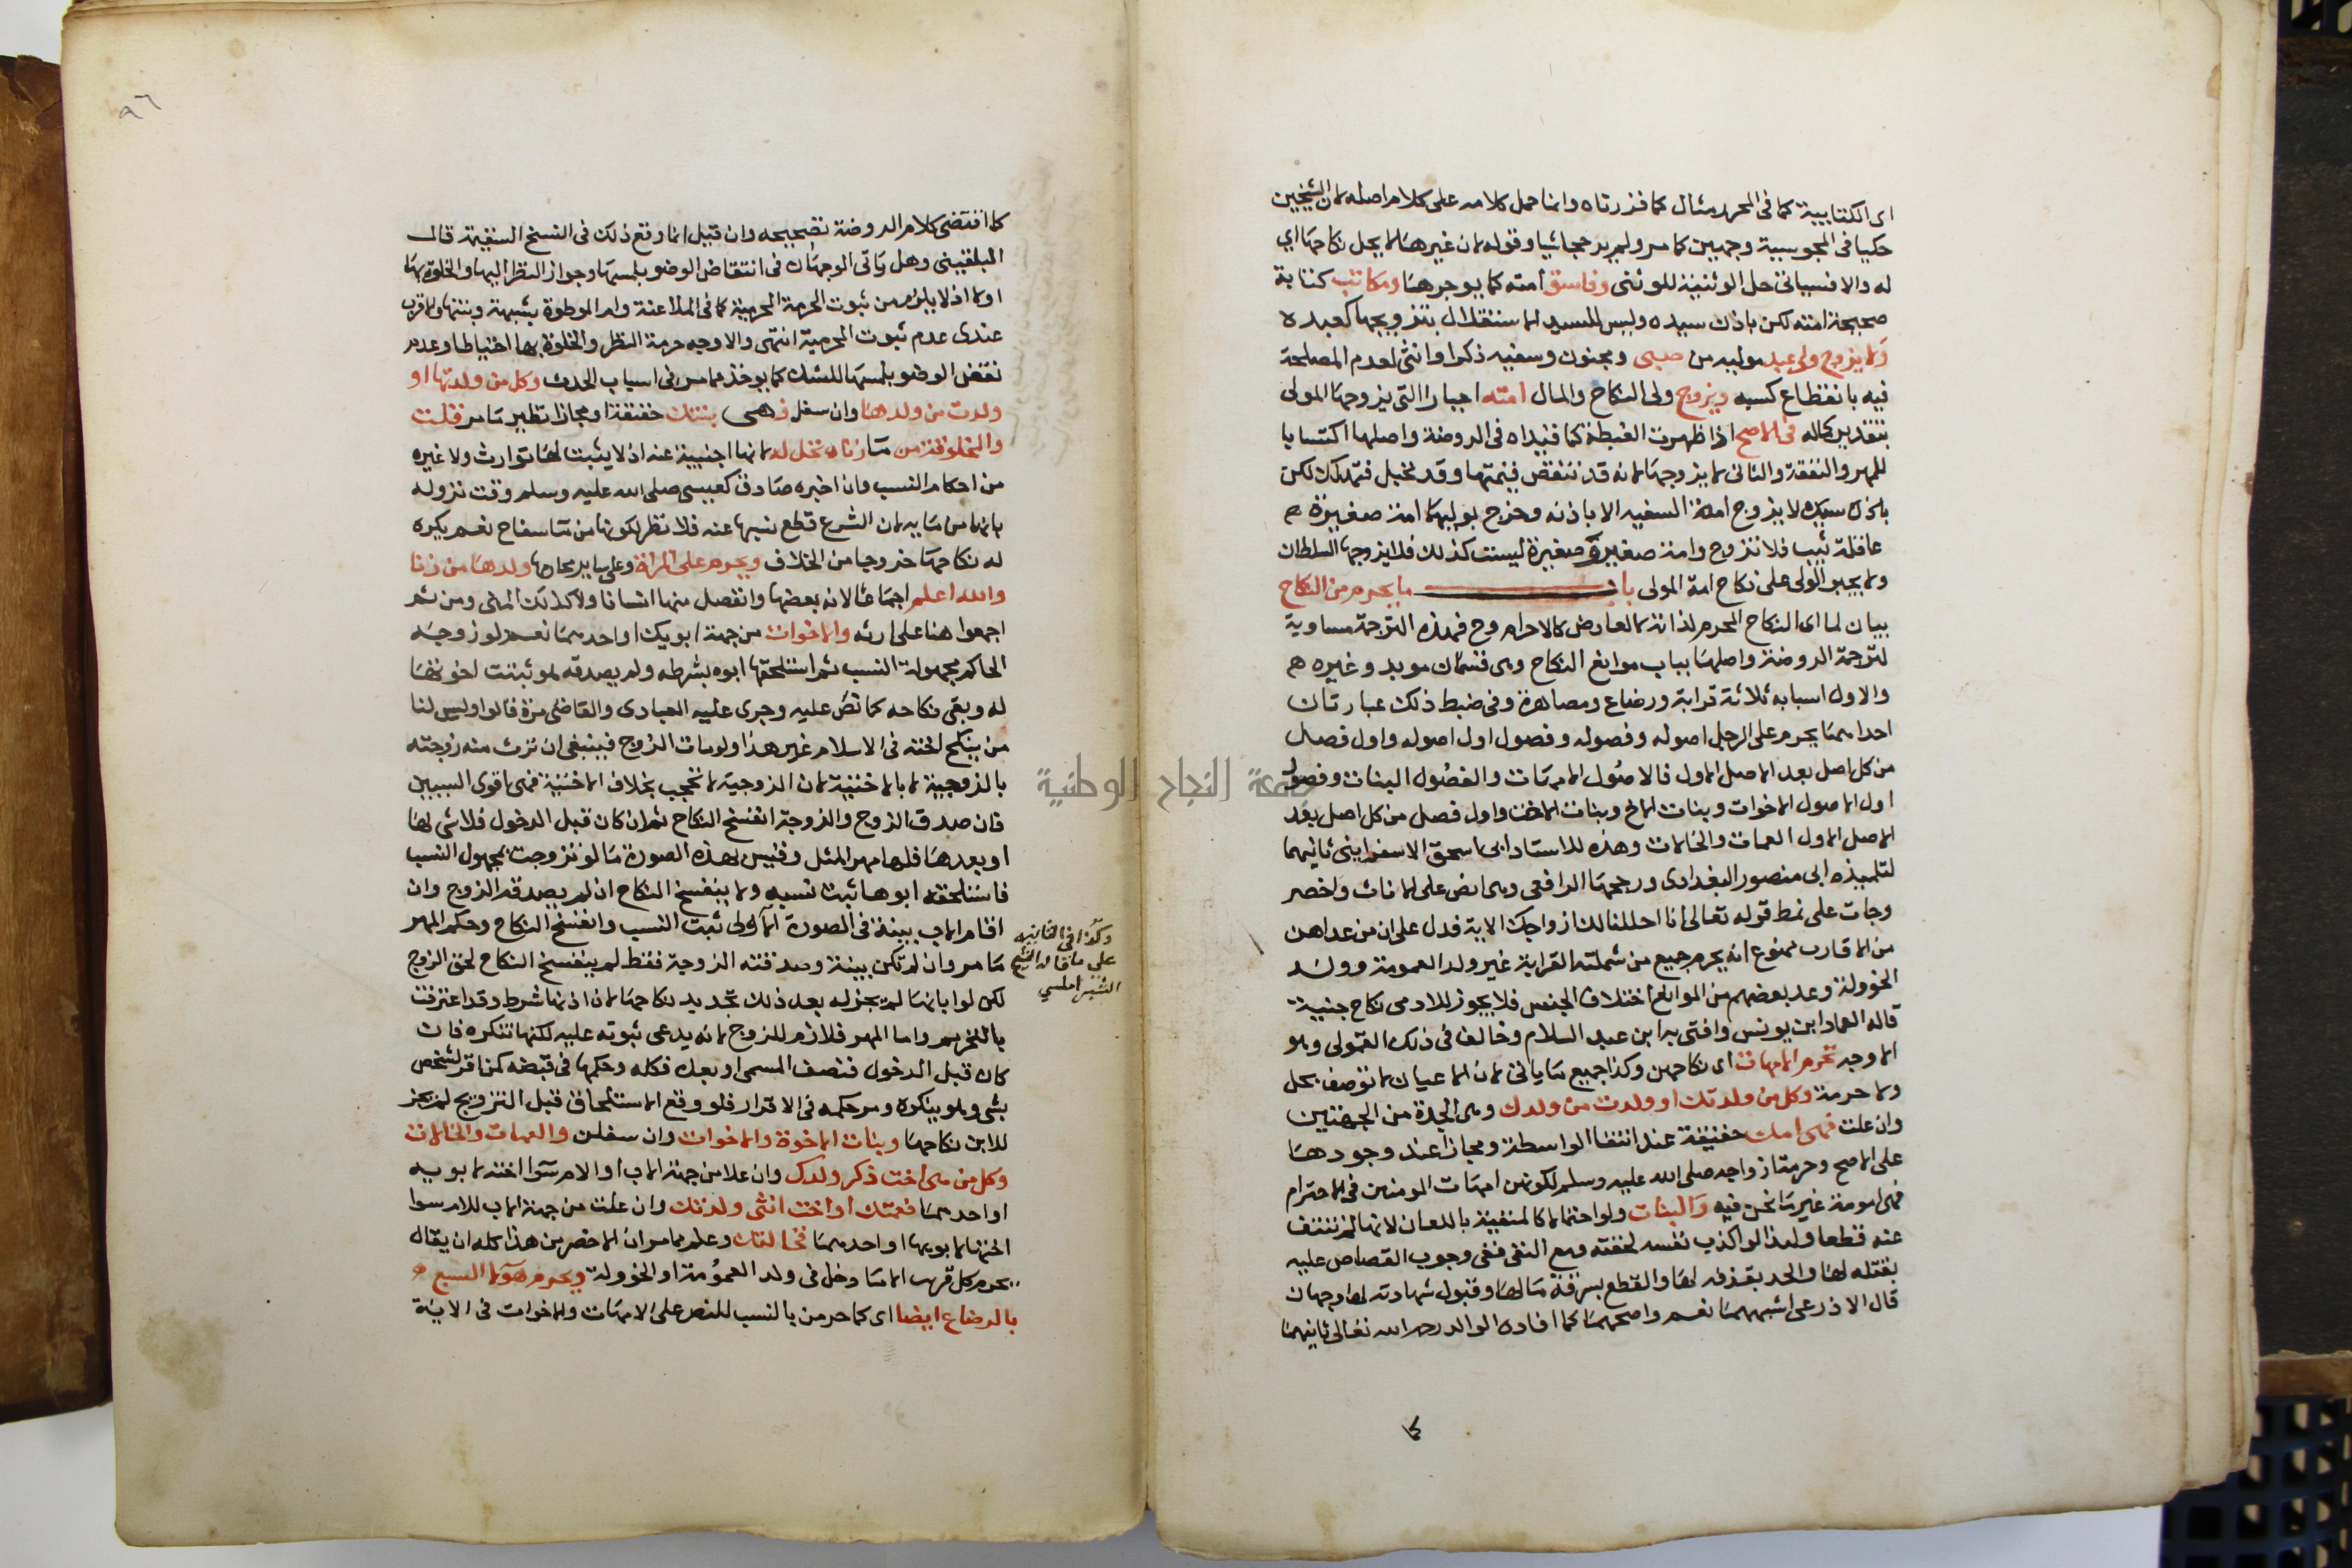 اى الكتابية كما فى المحرر مثال كما قررناه وانما حمل كلامه على كلام اصله لان الشيخين
حكيا فى المجوسية وجهين كما مر ولم يرجحا شيا وقوله لان غيرها لا يحل نكاحها اي
له والا فسياتى حل الوثنية للوثنى وفاسق امته كما يوجرها ومكاتب كتابة
صحيحة امته لكن باذن سيده وليس للسيد الاستقلال بتزويجها كعبده
ولا يزوج ولى عبد موليه من صبى ومجنون وسفيه ذكرا وانثى لعدم المصلحة
فيه بانقطاع كسبه ويزوج ولى النكاح والمال امته اجبارا التى يزوجها المولى
بتقدير كماله فى الاصح اذا ظهرت الغبطة كما قيداه فى الروضة واصلها اكتسابا
للمهر والنفقة والثانى لا يزوجها لانه قد تنقض قيمتها وقد تحبل فتهلك لكن
لا يزوج امة السفيه الا باذنه وخرج بوليها امة صغيرة
عاقلة ثيب فلا تزوج وامة صغير وصغيرة ليست كذلك فلا يزوجها السلطان
ولا يجبر الولى على نكاح امة المولى باب ما يحرم من النكاح
بيان لما اى النكاح المحرم لذاته لا لعارض كالاحرام وح فهذه الترجمة مساوية
لترجمة الروضة واصلها بباب موانع النكاح وهى قسمان موبد وغيره
والاول اسبابه ثلاثة قرابة ورضاع ومصاهرة وفى ضبط ذلك عبارتان
احداهما يحرم على الرجل اصوله وفصوله وفصول اول اصوله واول فصل
من كل اصل بعد الاصل الاول فالاصول الامهات والفصول البنات وفصول
اول الاصول الاخوات وبنات الاخ وبنات الاخت واول فصل من كل اصل بعد
الاصل الاول العمات والخالات وهذه للاستاد ابى اسحق الاسفراينى ثانيهما
لتلميذه ابى منصور البغدادى ورجحها الرافعى وهى انص على الاناث واخصر
وجات على نمط قوله تعالى انا احللنا لك ازواجك الاية فدل على ان من عداهن
من الاقارب ممنوع انه يحرم جميع من شملته القرابة غير ولد العمومة وولد
الخوولة وعد بعضهم من الموانع اختلاف الجنس فلا يجوز للادمى نكاح جنية
قاله العماد ابن يونس وافتى به ابن عبد السلام وخالف فى ذلك القمولى وهو
الاوجه تحرم الامهات اى نكاحهن وكذا جميع ما ياتى لان الاعيان لا توصف بحل
ولا حرمة وكل من ولدتك او ولدت من ولدك وهى الجدة من الجهتين
وان علت فهى امك حقيقة عند انتفا الواسطة ومجازا عند وجودها
على الاصح وحرمة ازواجه صلى الله عليه وسلم لكونهن امهات المومنين فى الاحترام
فهى امومة غير ما نحن فيه والبنات ولو احتمالا كالمنفية باللعان لانها لم تنتف
عنه قطعا ولهذا لو اكذب نفسه لحقته ومع النفى ففى وجوب القصاص عليه
بقتله لها والحد بقذفه لها والقطع بسرقة مالها وقبول شهادته لها وجهان
قال الاذرعى اشبههما نعم واصحهما كما افاده الوالد رحمه الله تعالى ثانيهما
كا
٩٦
كما اقتضى كلام الروضة تصحيحه وان قيل انما وقع ذلك فى النسخ السقيمة قال
البلقينى وهل ياتى الوجهان فى انتقاض الوضو بلمسها وجواز النظر اليها والخلوة بها
اولا اذ لا يلزم من ثبوت الحرمة المحرمية كما فى الملاعنة وام الموطوة بشبهة وبنتها والاقرب
عندى عدم ثبوت المحرمية انتهى والاوجه حرمة النظر والخلوة بها احتياطا وعدم
نقض الوضو بلمسها للشك كما يوخذ مما مر فى اسباب الحدث وكل من ولدتها او
ولدت من ولدها وان سفل فهى بنتك حقيقة او مجازا نظير ما مر قلت
والمخلوقة من ماء زناه تحل له لانها اجنبية عنه اذ لا يثبت لها توارث ولا غيره
من احكام النسب وان اخبره صادق كعيسى صلى الله عليه وسلم وقت نزوله
بانها من مايه لان الشرع قطع نسبها عنه فلا نظر لكونها من ما سفاح نعم يكره
له نكاحها خروجا من الخلاف ويحرم على المراة وعلى ساير محارمها ولدها من زنا
والله اعلم اجماعا لانه بعضها وانفصل منها انسانا ولا كذلك المنى ومن ثم
اجمعوا هنا على ارثه والاخوات من جهة ابويك او احدهما نعم لو زوجه
الحاكم مجهولة النسب ثم استلحقها ابوه بشرطه ولم يصدقه هو ثبتت اخوتها
له وبقى نكاحه كما نص عليه وجرى عليه العبادى والقاضى مرة قالوا وليس لنا
من ينكح اخته فى الاسلام غير هذا ولو مات الزوج فينبغى ان ترث منه زوجته
بالزوجية لا بالاختية لان الزوجية لا تحجب بخلاف الاختية فهى اقوى السببين
فان صدق الزوج والزوجة انفسخ النكاح ثم ان كان قبل الدخول فلا شى لها
او بعدها فلها مهر المثل وقيس بهذه الصورة ما لو تزوجت بمجهول النسب
فاستلحقه ابوها ثبت نسبه ولا ينفسخ النكاح ان لم يصدقه الزوج وان
اقام الاب بينة فى الصورة الاولى ثبت النسب وانفسخ النكاح وحكم المهر
ما مر وان لم تكن بينة وصدقته الزوجة فقط لم ينفسخ النكاح لحق الزوج
لكن لو ابانها لم يجز له بعد ذلك تجديد نكاحها لان اذنها شرط وقد اعترفت
بالتحريم واما المهر فلازم للزوج لانه يدعى ثبوته عليه لكنها تنكره فان
كان قبل الدخول فنصف المسمى او بعده فكله وحكمها فى قبضه كمن اقر لشخص
بشى وهو ينكره ومر حكمه فى الاقرار فلو وقع الاستلحاق قبل التزويج لم يجز
للابن نكاحها وبنات الاخوة والاخوات وان سفلن والعمات والخالات
وكل من هى اخت ذكر ولدك وان علا من جهة الاب او الام سوا اخته لابويه
او احدهما فعمتك او اخت انثى ولدتك وان علت من جهة الاب للام سوا
اختها لابويها او احدهما فخالتك وعلم مما مر ان الاخصر من هذا كله ان يقال
يحرم كل قريب الا ما دخل فى ولد العمومة او الخوولة ويحرم هولا السبع
بالرضاع ايضا اى كما حرمن بالنسب للنص على الامهات والاخوات فى الاية
على ما قاله الشيخ
الشبراملسي
جامعة النجاح الوطنية